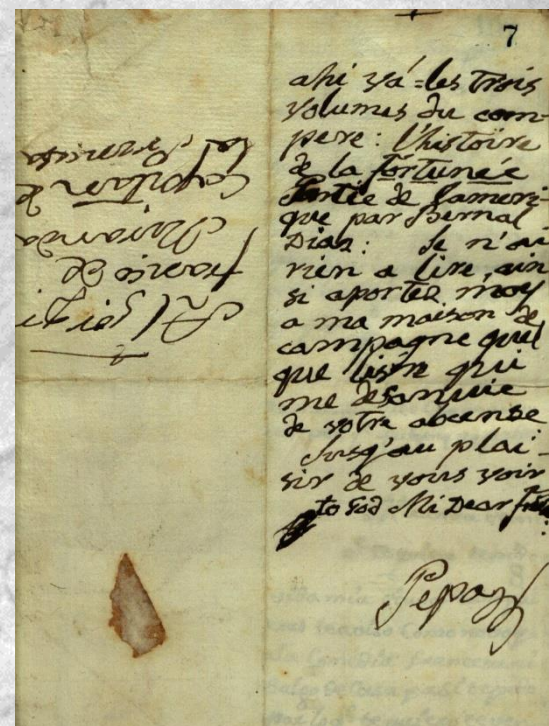 7
ahi vá = les trois
volumes du com-
pere: l'histoire
de la fortunée
Partie de lameri-
que par Bernal
Dias: Je n'au
rien a lire, ain
si aportez moy
a ma maison de
campagne quel
que livre qui
me desannuie
de votre absense
Jusq'au plai-
sir de vous voir
to God Mi Dear
Pepa
Al
de
Miranda
Capitan de
la Princesa